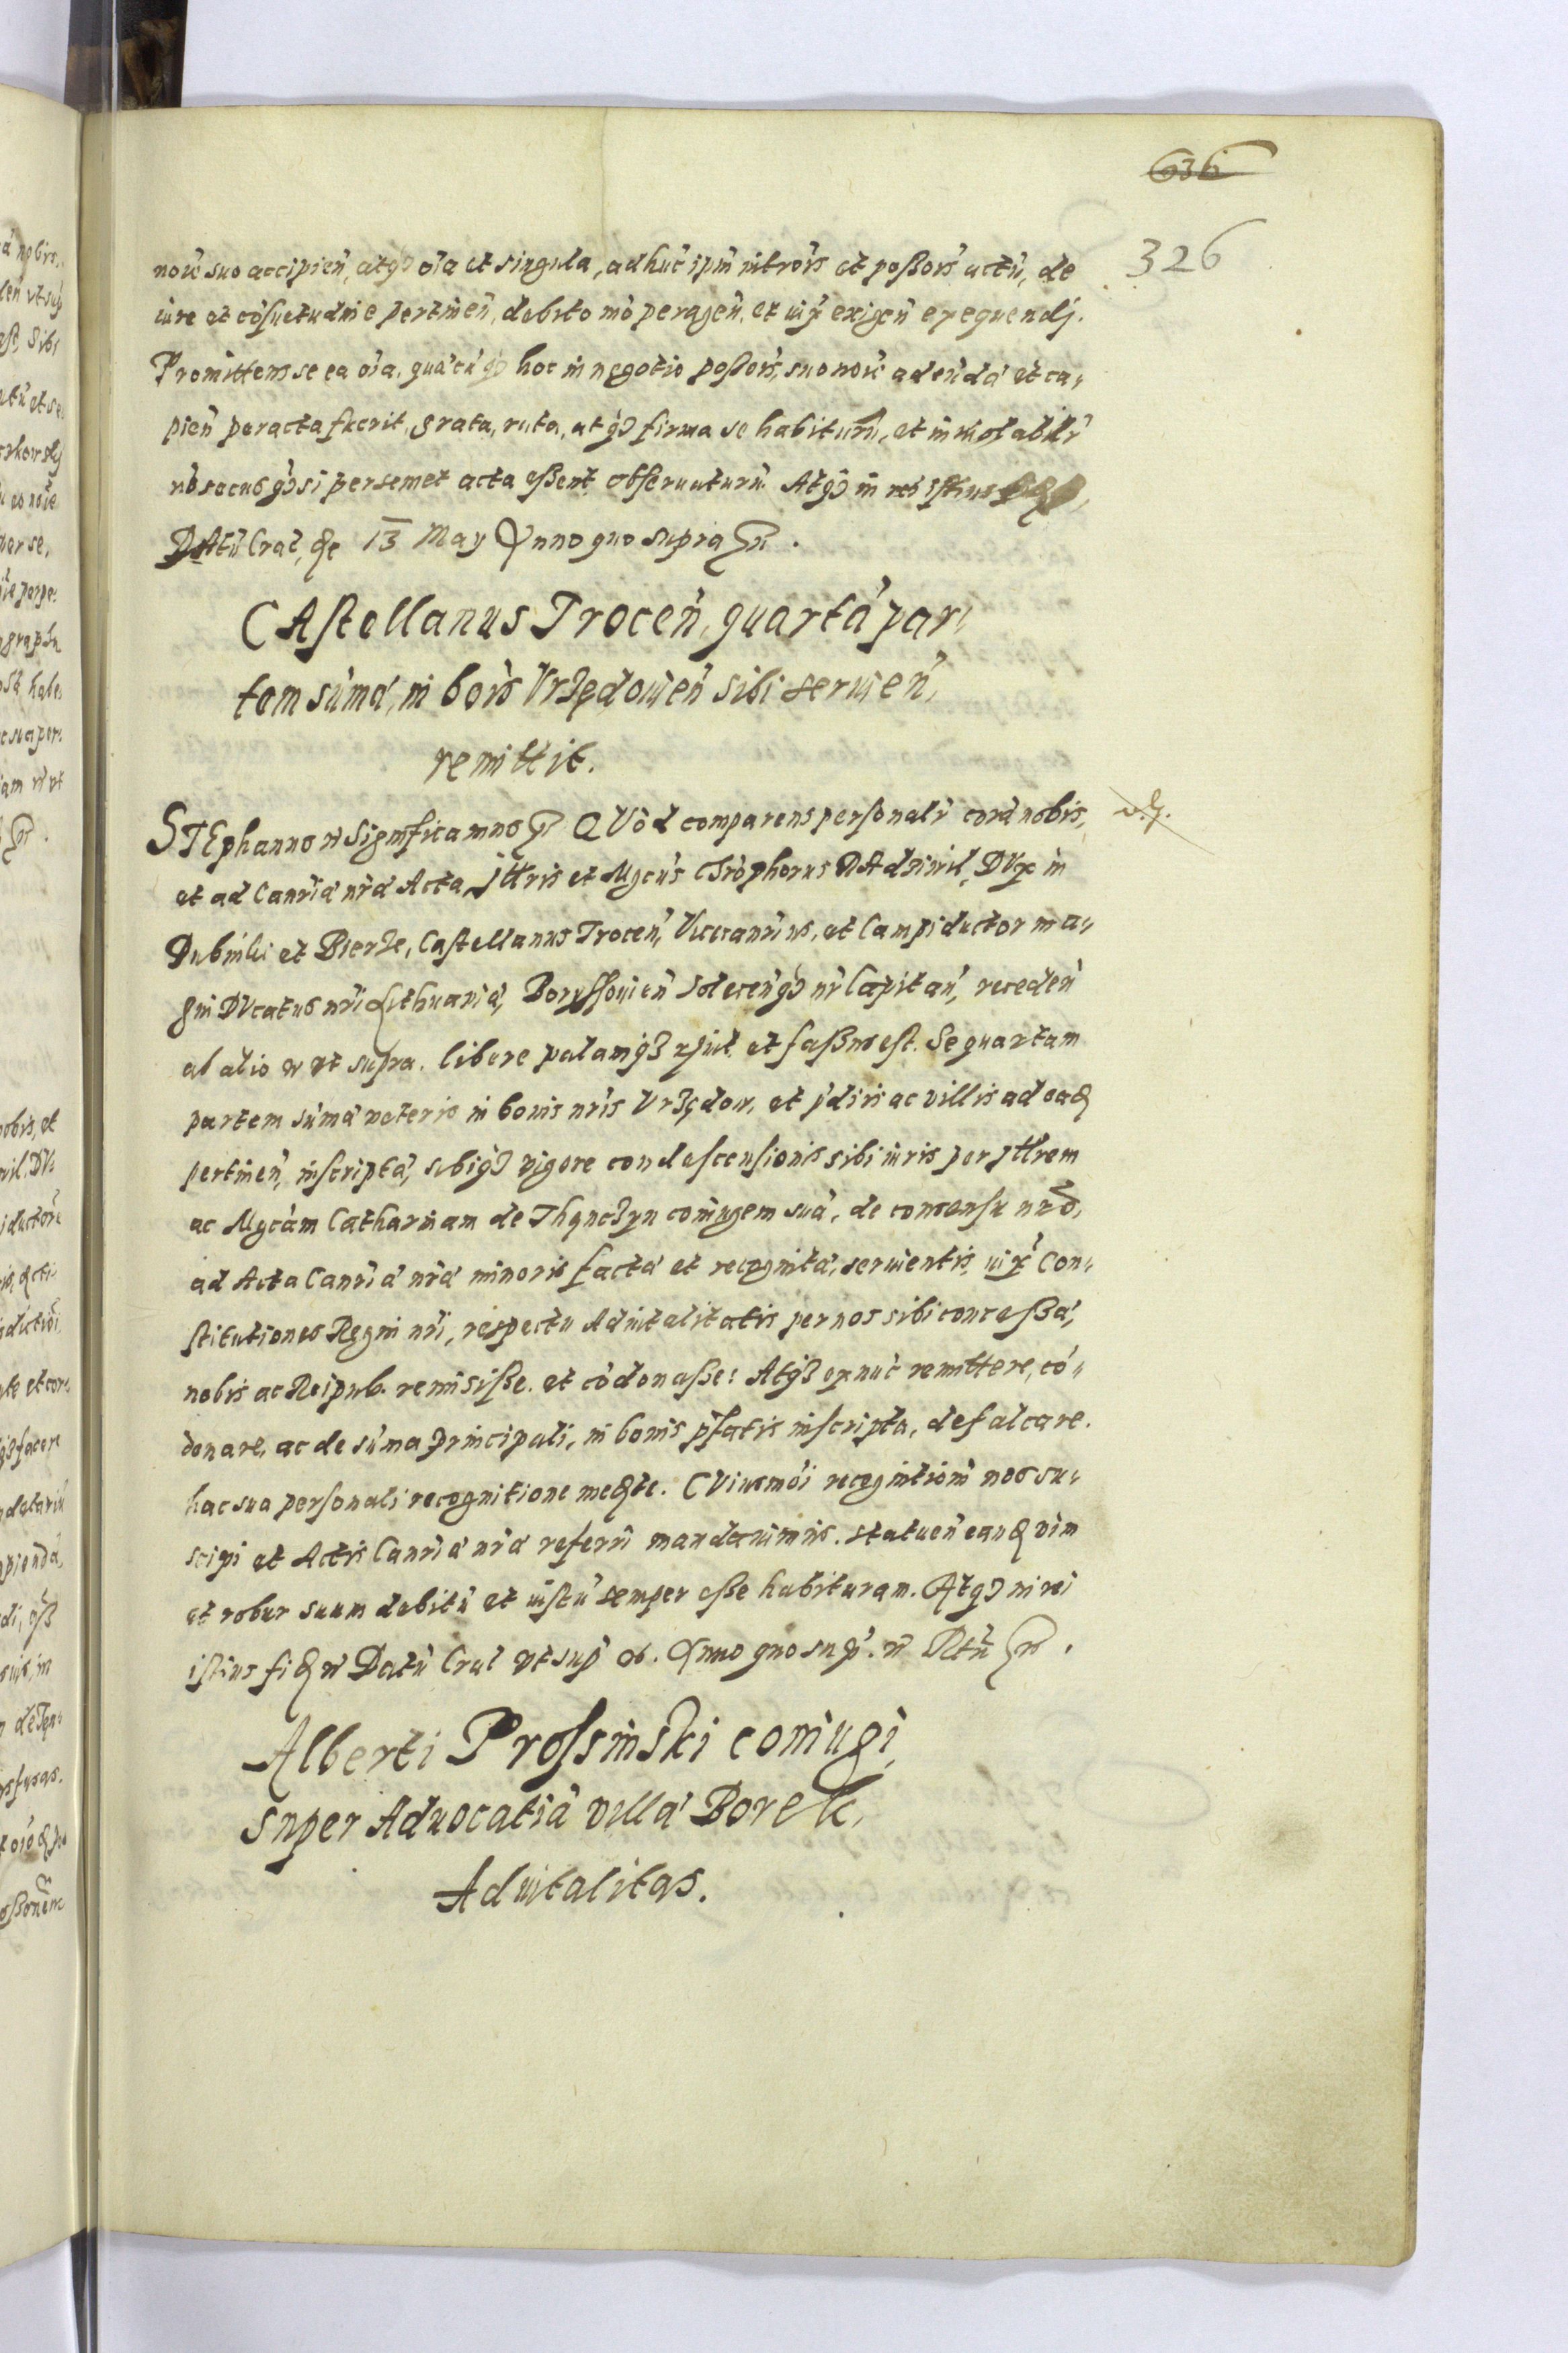 636
326
noīe suo accipien̄, atqȝ oīa et singula, ad huc̄ ipm̄ intrōis et possōis actū, de
iure et cōsuetudine pertinen̄, debito mō peragen̄, et exigen̄ exequendj.
Promittens se ea oīa, quaecūqȝ hoc in negotio possōis, suo noīe adeūdae et ca-
pien̄ peracta fuerit, grata, rata, atqȝ firma se habiturū, et inviolabilr̄
nō secus qȝ si persemet acta essent observaturū. Atqȝ in rei istius
DAtū Crac̄, die 13 May Anno quo supra
CAstellanus Trocen̄, quartā par-
tem sūmae, in bonis Vrzędovien̄ sibi servien̄,
remittit.
STEphanus Significamus QVōd comparens personalr̄ corā nobis,
et ad Canr̄iae nr̄ae Acta, Jllris et Mgcūs Chrōphorus RAdziwil, DVx in
Dubinki et Bierze, Castellanus Trocen̄, Vicecanr̄ius, et Campiductor ma-
gni DVcatus nr̄i Lithuaniae, Boryssovien̄ Solecen̄qȝ nr̄ Capitan̄, receden̄
ab alio ut supra. libere palamqȝ et fassus est. Se quartam
partem sūmae veteris in bonis nr̄is Vrzędow, et p̄diis ac villis ad ea
pertinen̄, inscriptae, sibiqȝ vigore condescensionis sibi iuris per Jllrem
ac Mgcam Catharinam de Thęnczyn coniugem suā, de consensu nr̄o,
ad Acta Canr̄iae nr̄ae minoris factae et recognitae, servientis, Con-
stitutiones Regni nr̄i, respectu Advitalitatis per nos sibi concessae,
nobis ac Reipub. remisisse. et cōdonasse: Atqȝ ex nuc̄ remittere, cō-
donare, ac de sūma principali, in bonis p̄fatis inscripta, defalcare.
hac sua personali recognitione mediāte. CViusmōi recognitionē nos su-
scipi et Actis Canr̄iae nr̄ae referri mandavimus. statuen̄ eand vim
et robur suum debitū et iustū semper esse habituram. Atqȝ in rei
istius fid Datū Crac̄ ut sup̄. Anno quo sup̄.
Alberti Prossinski coniugi,
super Advocatiā villae Borek,
Advitalitas.